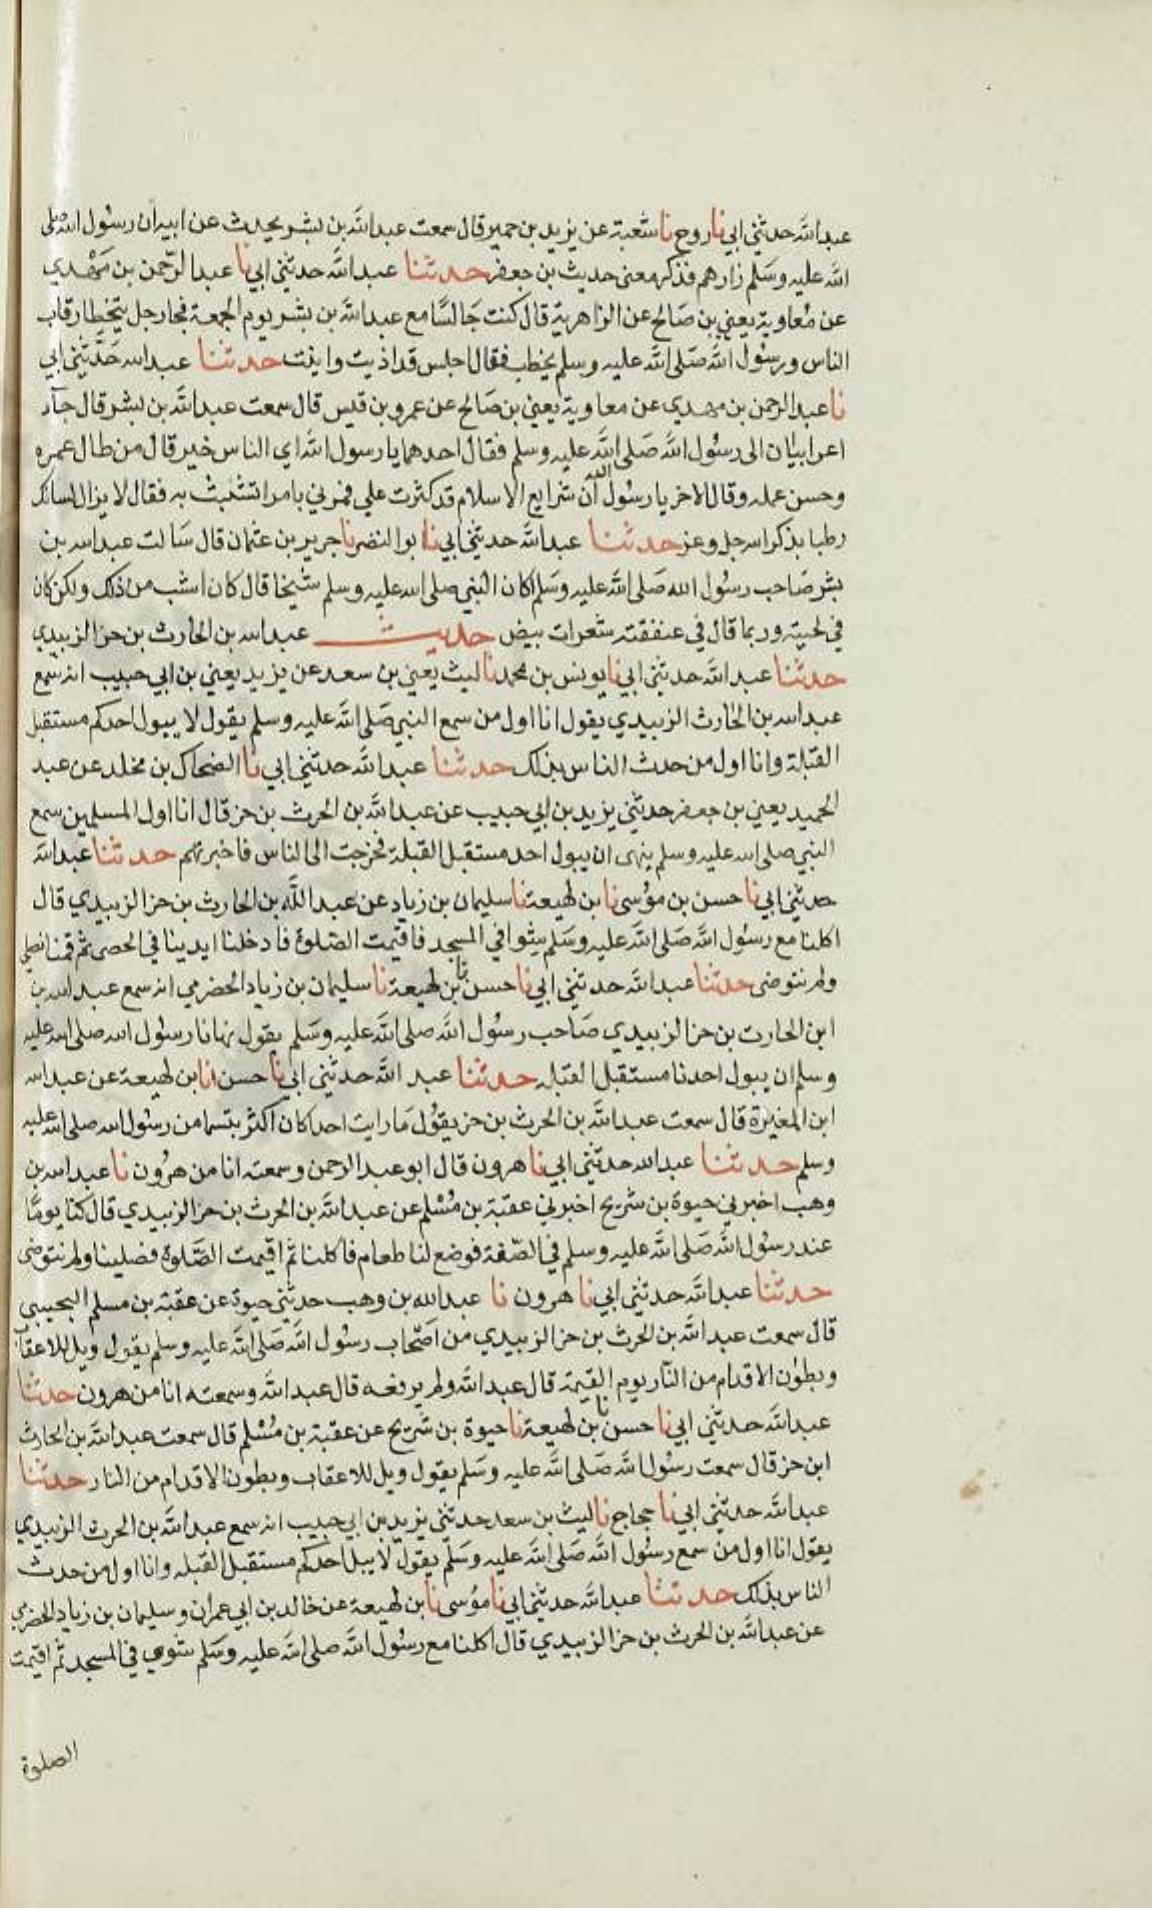 عبدالله حدثني ابي نا روح نا شعبة عن يزيد بن حمير قال سمعت عبدالله بن بشر يحدث عن ابيه ان رسول الله صلى
الله عليه وسلم زارهم فذكر معنى حديث بن جعفر حدثنا عبدالله حدثني ابي نا عبدالرحمن بن مهدي
عن معاوية يعني بن صالح عن الزاهرية قال كنت جالسا مع عبدالله بن بشر يوم الجمعة فجا رجل يتخطا رقاب
الناس ورسول الله صلى الله عليه وسلم يخطب فقال اجلس قد اذيت وانيت حدثنا عبدالله حدثني ابي
نا عبدالرحمن بن مهدي عن معاوية يعني بن صالح عن عمرو بن قيس قال سمعت عبدالله بن بشر قال جآء
اعرابيان الى رسول الله صلى الله عليه وسلم فقال احدهما يا رسول الله اي الناس خير قال من طال عمره
وحسن عمله وقال الاخر يا رسول الله ان شرايع الاسلام قد كثرت علي فمرني بامر اتشبث به فقال لا يزال لسانك
رطبا بذكر الله جل وعز حدثنا عبدالله حدثني ابي نا ابو النضر نا جرير بن عثمان قال سالت عبدالله بن
بشر صاحب رسول الله صلى الله عليه وسلم اكان النبي صلى الله عليه وسلم شيخا قال كان اشب من ذلك ولكن كان
في لحيته وربما قال في عنفقته شعرات بيض حديث عبدالله بن الحارث بن جزا الزبيدي
حدثنا عبدالله حدثني ابي نا يونس بن محمد نا ليث يعني بن سعد عن يزيد يعني بن ابي حبيب انه سمع
عبدالله بن الحارث الزبيدي يقول انا اول من سمع النبي صلى الله عليه وسلم يقول لا يبول احدكم مستقبل
القبلة وانا اول من حدث الناس بذلك حدثنا عبدالله حدثني ابي نا الضحاك بن مخلد عن عبد
الحميد يعني بن جعفر حدثني يزيد بن ابي حبيب عن عبدالله بن الحرث بن جز قال انا اول المسلمين سمع
النبي صلى الله عليه وسلم ينهى ان يبول احد مستقبل القبلة فخرجت الى الناس فاخبرتهم حدثنا عبدالله
حدثني ابي نا حسن بن موسى نا بن لهيعة نا سليمان بن زياد عن عبدالله بن الحارث بن جزا الزبيدي قال
اكلنا مع رسول الله صلى الله عليه وسلم شوا في المسجد فاقيمت الصلوة فادخلنا ايدينا في الحصى ثم قمنا نصلي
ولم نتوضى حدثنا عبدالله حدثني ابي نا حسن نا بن لهيعة نا سليمان بن زياد الحضرمي انه سمع عبدالله بن
ابن الحارث بن جزا الزبيدي صاحب رسول الله صلى الله عليه وسلم يقول نهانا رسول الله صلى الله عليه
وسلم ان يبول احدنا مستقبل القبله حدثنا عبد الله حدثني ابي نا حسن نا بن لهيعة عن عبدالله
ابن المغيرة قال سمعت عبدالله بن الحرث بن جز يقول ما رايت احدا كان اكثر بتسما من رسول الله صلى الله عليه
وسلم حدثنا عبدالله حدثني ابي نا هرون قال ابو عبدالرحمن وسمعته انا من هرون نا عبدالله بن
وهب اخبرني حيوة بن شريح اخبرني عقبة بن مسلم عن عبدالله بن الحرث بن جزا الزبيدي قال كنا يوما
عند رسول الله صلى الله عليه وسلم في الصفة فوضع لنا طعام فاكلنا ثم اقيمت الصلوة فصلينا ولم نتوضى
حدثنا عبدالله حدثني ابي نا هرون نا عبدالله بن وهب حدثني حيوة عن عقبة بن مسلم التجيبي
قال سمعت عبدالله بن الحرث بن جزا الزبيدي من اصحاب رسول الله صلى الله عليه وسلم يقول ويل للاعقاب
وبطون الاقدام من النار يوم القيمة قال عبدالله ولم يرفعه قال عبدالله وسمعته انا من هرون حدثنا
عبدالله حدثني ابي نا حسن نا بن لهيعة نا حيوة بن شريح عن عقبة بن مسلم قال سمعت عبدالله بن الحارث
ابن جز قال سمعت رسول الله صلى الله عليه وسلم يقول ويل للاعقاب وبطون الاقدام من النار حدثنا
عبدالله حدثني ابي نا حجاج نا ليث بن سعد حدثني يزيد بن ابي حبيب انه سمع عبدالله بن الحرث الزبيدي
يقول انا اول من سمع رسول الله صلى الله عليه وسلم يقول لا يبل احدكم مستقبل القبله وانا اول من حدث
الناس بذلك حدثنا عبدالله حدثني ابي نا موسى نا بن لهيعة عن خالد بن ابي عمران وسليمان بن زياد الحضرمي
عن عبدالله بن الحرث بن جزا الزبيدي قال اكلنا مع رسول الله صلى الله عليه وسلم شوي في المسجد ثم اقيمت
الصلوة